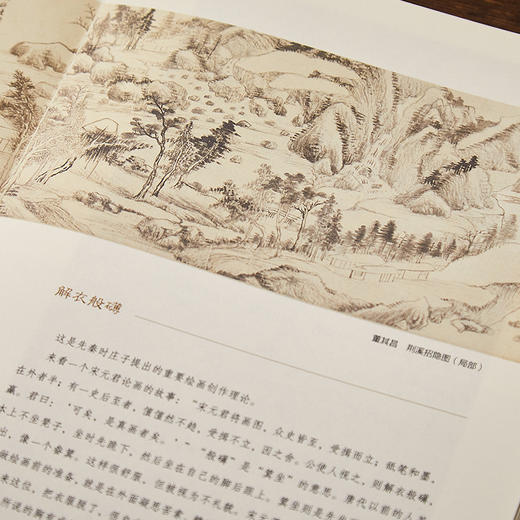 董其昌 荆溪招隐图（局部）
解衣般礴
这是先秦时庄子提出的重要绘画创作理论。
来看一个宋元君论画的故事：“宋元君将画图，众史皆至，受揖而立；舐笔和墨，
在外者半；有一史后至者，儃儃然不趋，受揖不立，因之舍。公使人视之，则解衣般礴，
臝。君曰：‘可矣，是真画者矣。’”“般礴”是“箕坐”的意思。唐代以前的人
本上不坐凳子，坐时先跪下，然后坐在自己的脚后跟上。箕坐则是
出，像一个畚箕。这样很舒服，但被视为不礼貌。
做绘画前的准备，就是在外面凝思苦索，
来这位，把衣服脱了，
所说的胸有